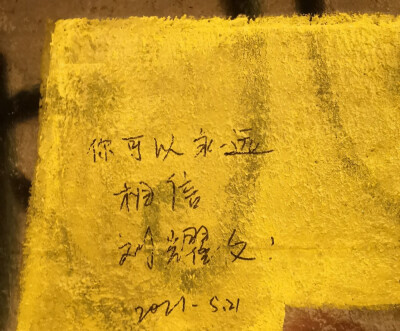 你可以永远
相信
刘耀文！
2021-5.21